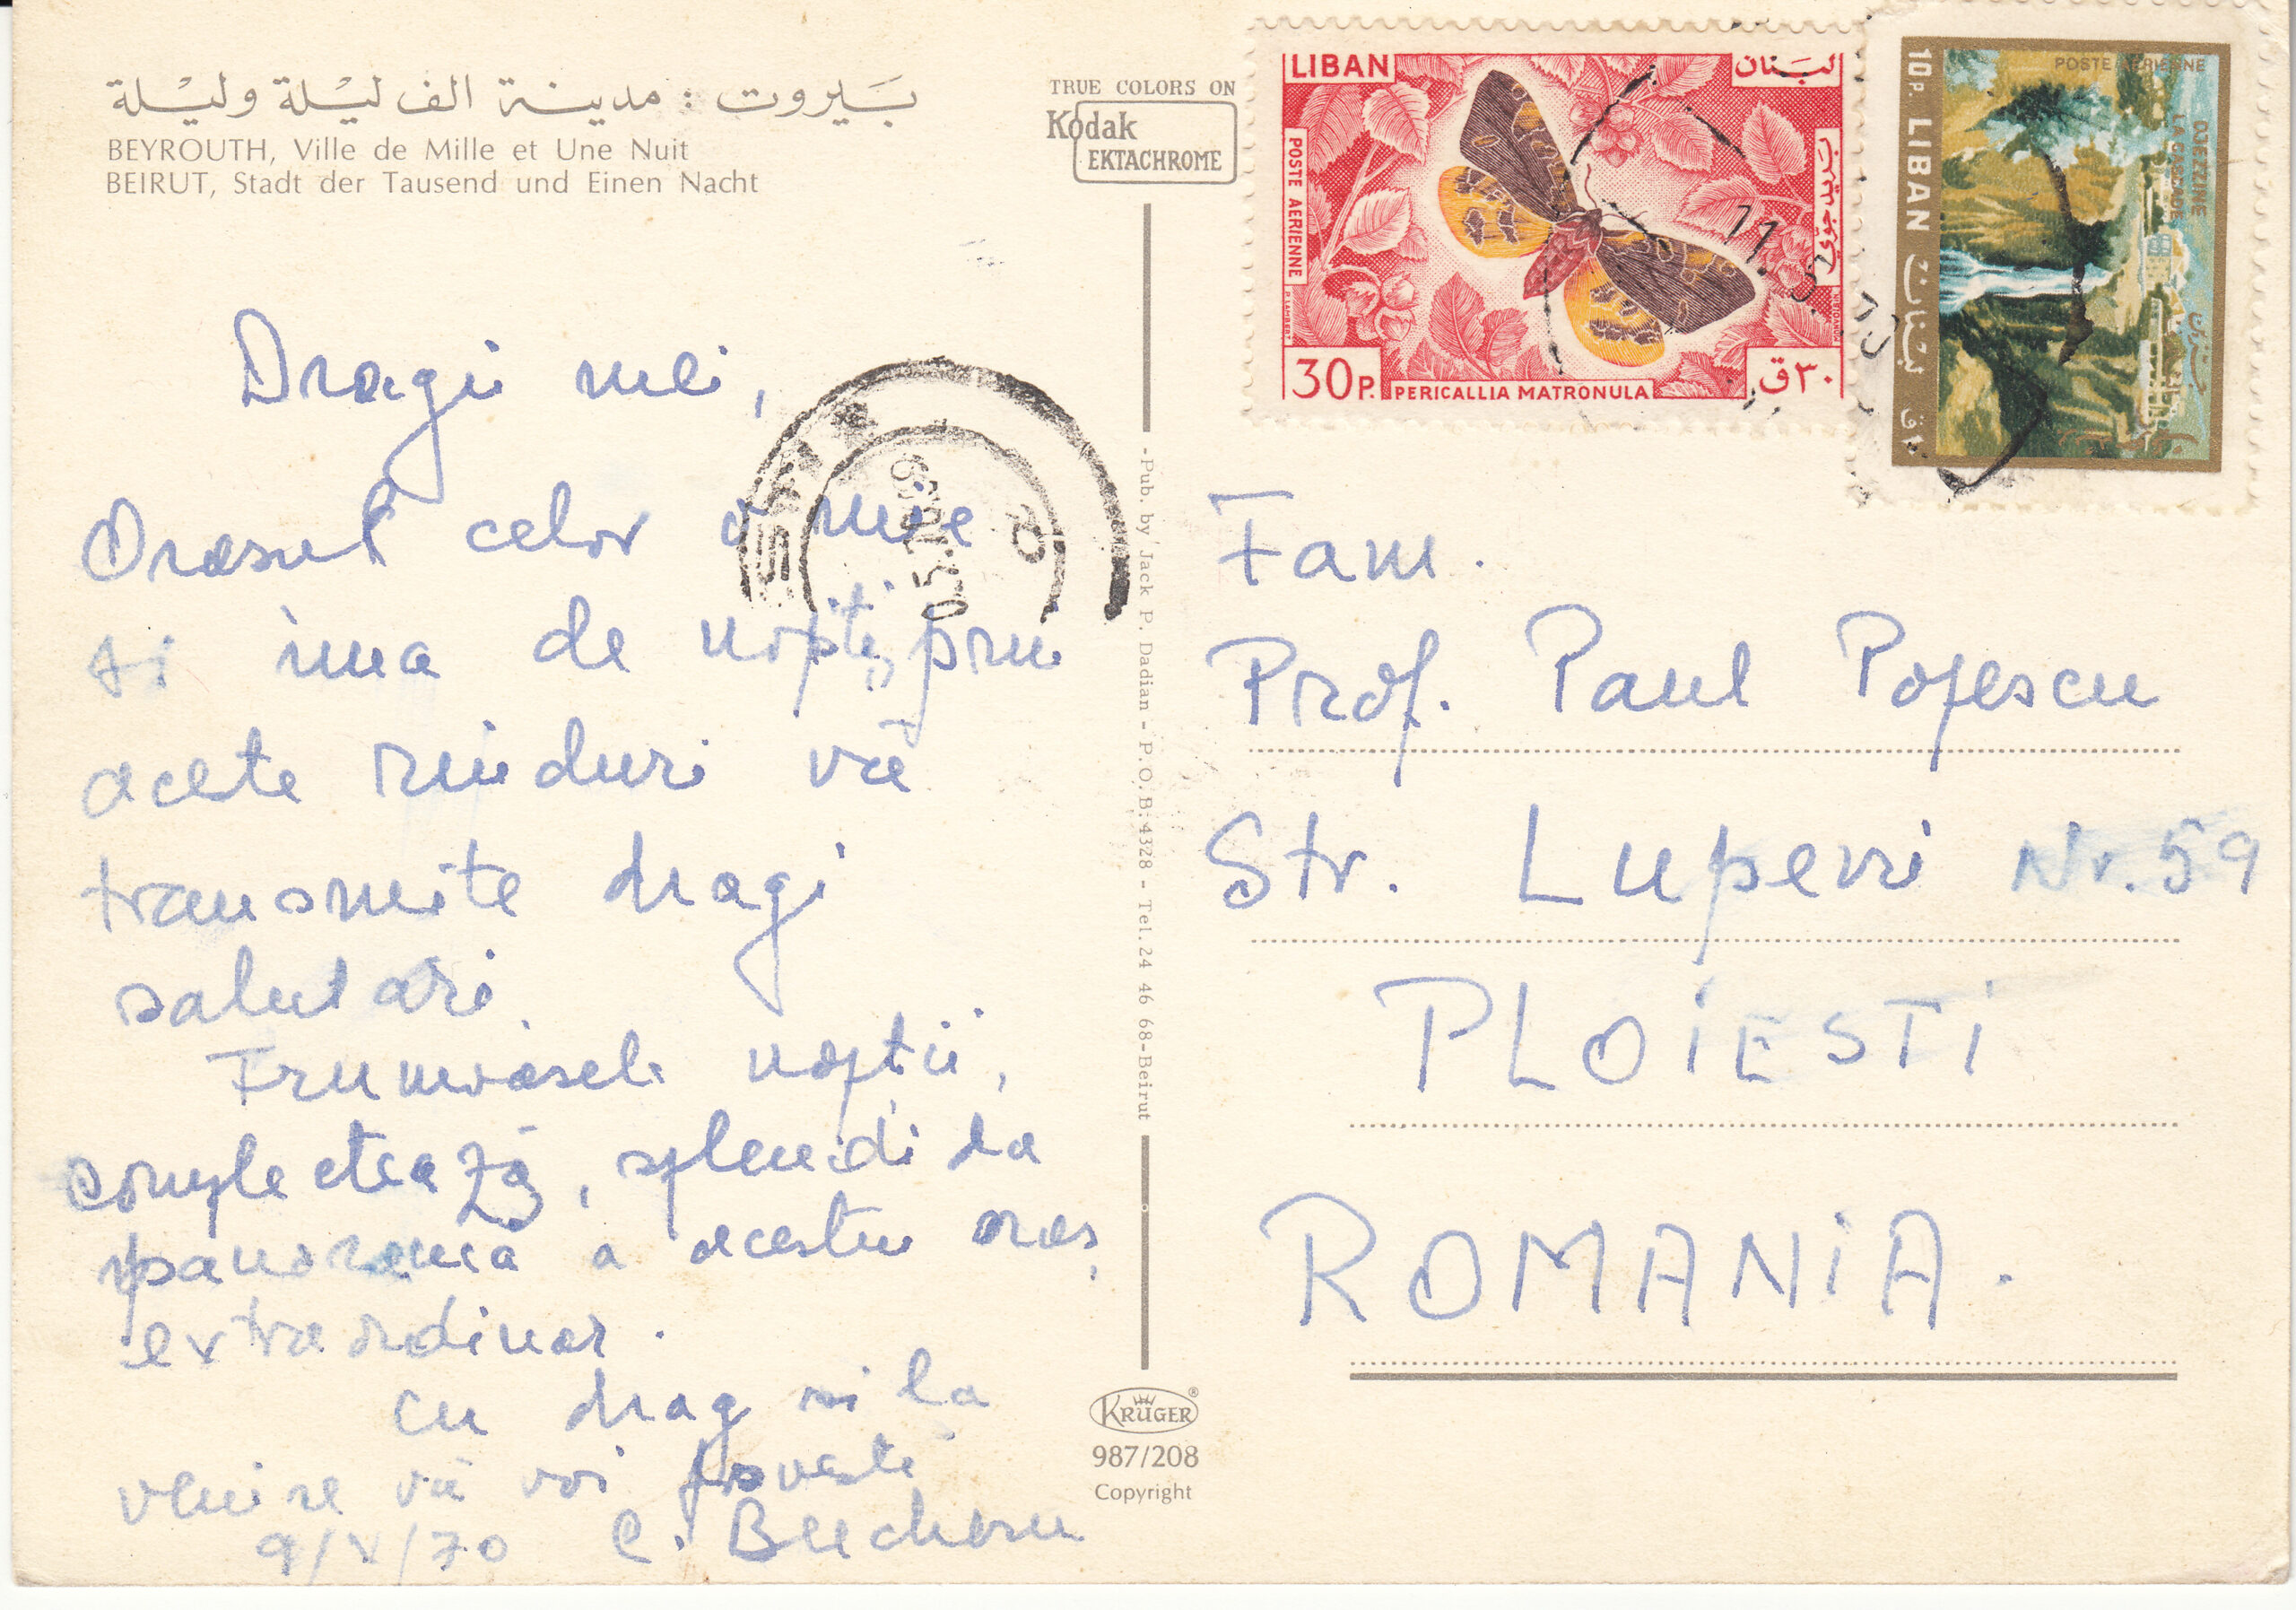 بيروت : مدينة الف ليلة وليلة
BEYROUTH, Ville de Mille et Une Nuit
BEIRUT, Stadt der Tausend und Einen Nacht
TRUE COLORS ON
Kodak
EKTACHROME
LIBAN لبنان
POSTE AERIENNE
بريد جوّي
30P. PERICALLIA MATRONULA ٣٠ق
POSTE AERIENNE
DJEZZINE
LA CASCADE
10P. LIBAN لبنان ١٠ق
جزين
11. 5. 70
Dragii mei,
Orasul celor o mie
si una de nopti, prin
aceste rinduri vă
transmite dragi
salutari.
Frumoasele noptii,
complectează, splendida
panorama a acestui oras,
extraordinar.
Cu drag si la
venire vă voi povesti
9/V/70 C.
-Pub. by Jack P. Dadian - P.O.B: 4328 - Tel. 24 46 68 - Beirut
Fam.
Prof. Paul Popescu
Str. Lupeni Nr. 59
PLOIESTI
ROMANIA.
KRÜGER®
987/208
Copyright